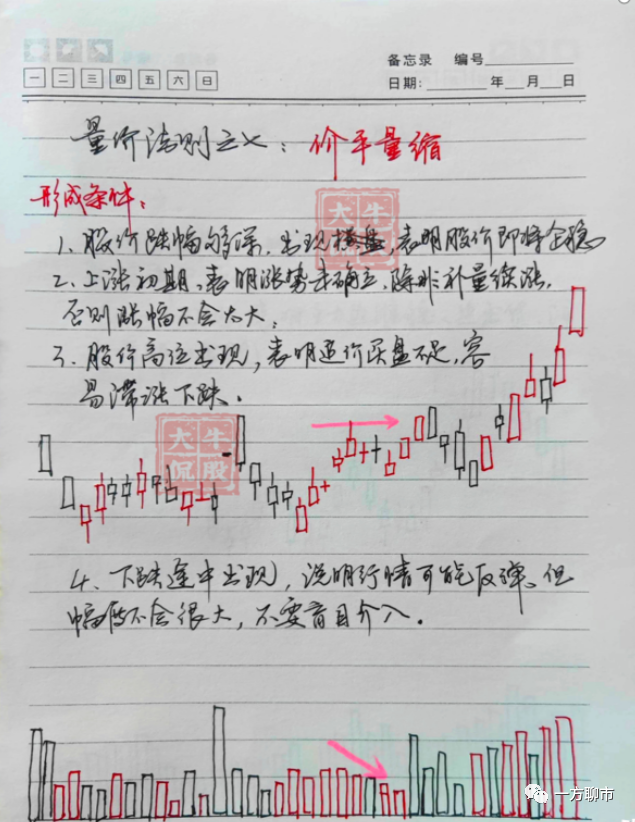 备忘录 编号
一 二 三 四 五 六 日
日期: 年 月 日
量价法则之七：价平量缩
形成条件：
1、股价跌幅够深，出现横盘，表明股价即将企稳
2、上涨初期，表明涨势未确立，除非补量续涨，
否则涨幅不会太大；
3、股价高位出现，表明追价买盘不足，容
易滞涨下跌．
大牛
侃股
大牛
侃股
4、下跌途中出现，说明行情可能反弹，但
幅度不会很大，不要盲目介入．
一方聊市